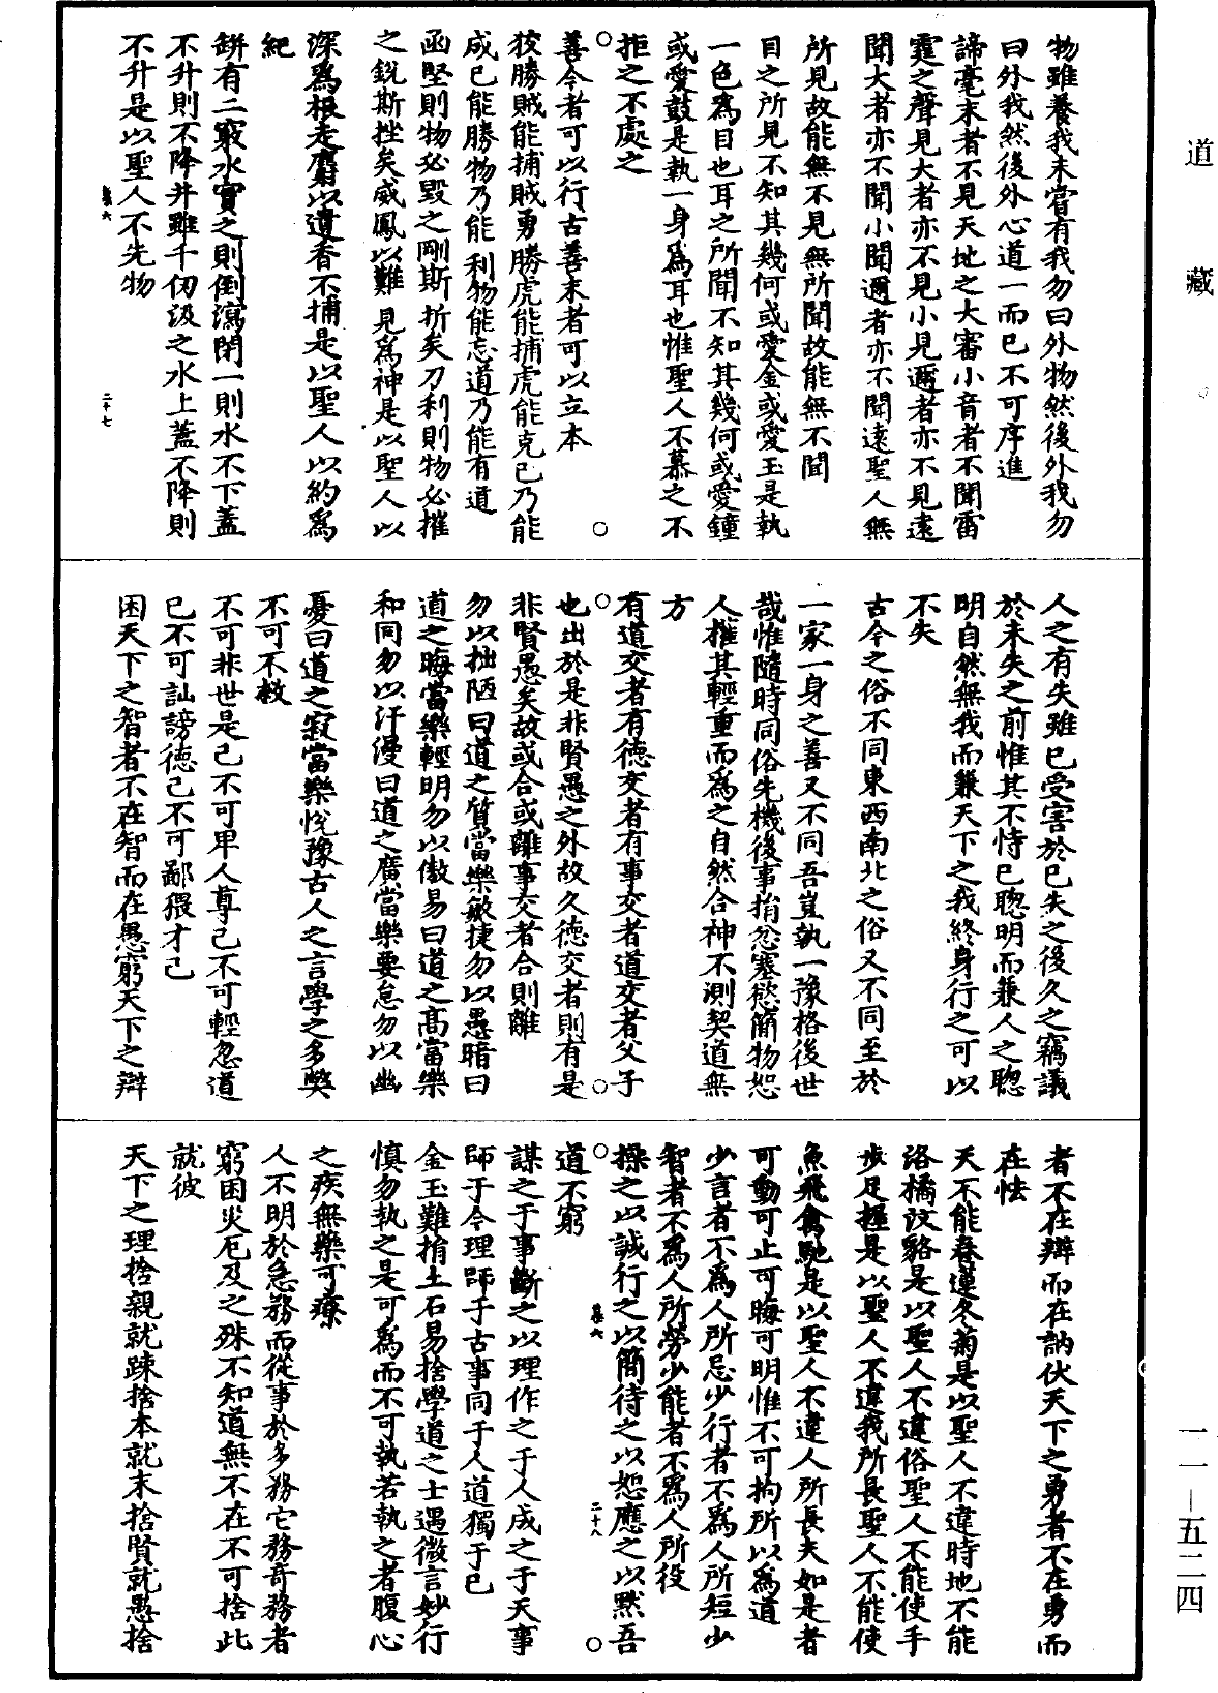 道藏
物雖養我未嘗有我勿曰外物然後外我勿
曰外我然後外心道一而已不可序進
諦毫末者不見天地之大審小音者不聞雷
霆之聲見大者亦不見小見邇者亦不見遠
聞大者亦不聞小聞邇者亦不聞遠聖人無
所見故能無不見無所聞故能無不聞
目之所見不知其幾何或愛金或愛玉是執
一色為目也耳之所聞不知其幾何或愛鐘
或愛鼓是執一身為耳也惟聖人不慕之不
拒之不處之
善今者可以行古善末者可以立本
狡勝賊能捕賊勇勝虎能捕虎能克己乃能
成己能勝物乃能利物能忘道乃能有道
函堅則物必毀之剛斯折矣刀利則物必摧
之銳斯挫矣威鳳以難見為神是以聖人以
深為根走麝以遺香不捕是以聖人以約為
紀
缾有二竅水實之則倒瀉閉一則水不下蓋
不升則不降井雖千仞汲之水上蓋不降則
不升是以聖人不先物
卷六 二十七
人之有失雖已受害於已失之後久之竊議
於未失之前惟其不恃己聰明而兼人之聰
明自然無我而兼天下之我終身行之可以
不失
古今之俗不同東西南北之俗又不同至於
一家一身之善又不同吾豈執一豫格後世
哉惟隨時同俗先機後事捐忿塞慾簡物恕
人權其輕重而為之自然合神不測契道無
方
有道交者有德交者有事交者道交者父子
也出於是非賢愚之外故久德交者則有是
非賢愚矣故或合或離事交者合則離
勿以拙陋曰道之質當樂敏捷勿以愚暗曰
道之晦當樂輕明勿以傲易曰道之高當樂
和同勿以汗漫曰道之廣當樂要急勿以幽
憂曰道之寂當樂悅豫古人之言學之多弊
不可不救
不可非世是己不可卑人尊己不可輕忽道
己不可訕謗德己不可鄙猥才己
困天下之智者不在智而在愚窮天下之辯
者不在辯而在訥伏天下之勇者不在勇而
在怯
天不能春蓮冬菊是以聖人不違時地不能
洛橘汶貉是以聖人不違俗聖人不能使手
步足握是以聖人不違我所長聖人不能使
魚飛禽馳是以聖人不違人所長夫如是者
可動可止可晦可明惟不可拘所以為道
少言者不為人所忌少行者不為人所短少
智者不為人所勞少能者不為人所役
操之以誠行之以簡待之以恕應之以默吾
道不窮
卷六 二十八
謀之于事斷之以理作之于人成之于天事
師于今理師于古事同于人道獨于己
金玉難捐土石易捨學道之士遇微言妙行
慎勿執之是可為而不可執若執之者腹心
之疾無藥可療
人不明於急務而從事於多務它務奇務者
窮困災厄及之殊不知道無不在不可捨此
就彼
天下之理捨親就疎捨本就末捨賢就愚捨
一一—五二四